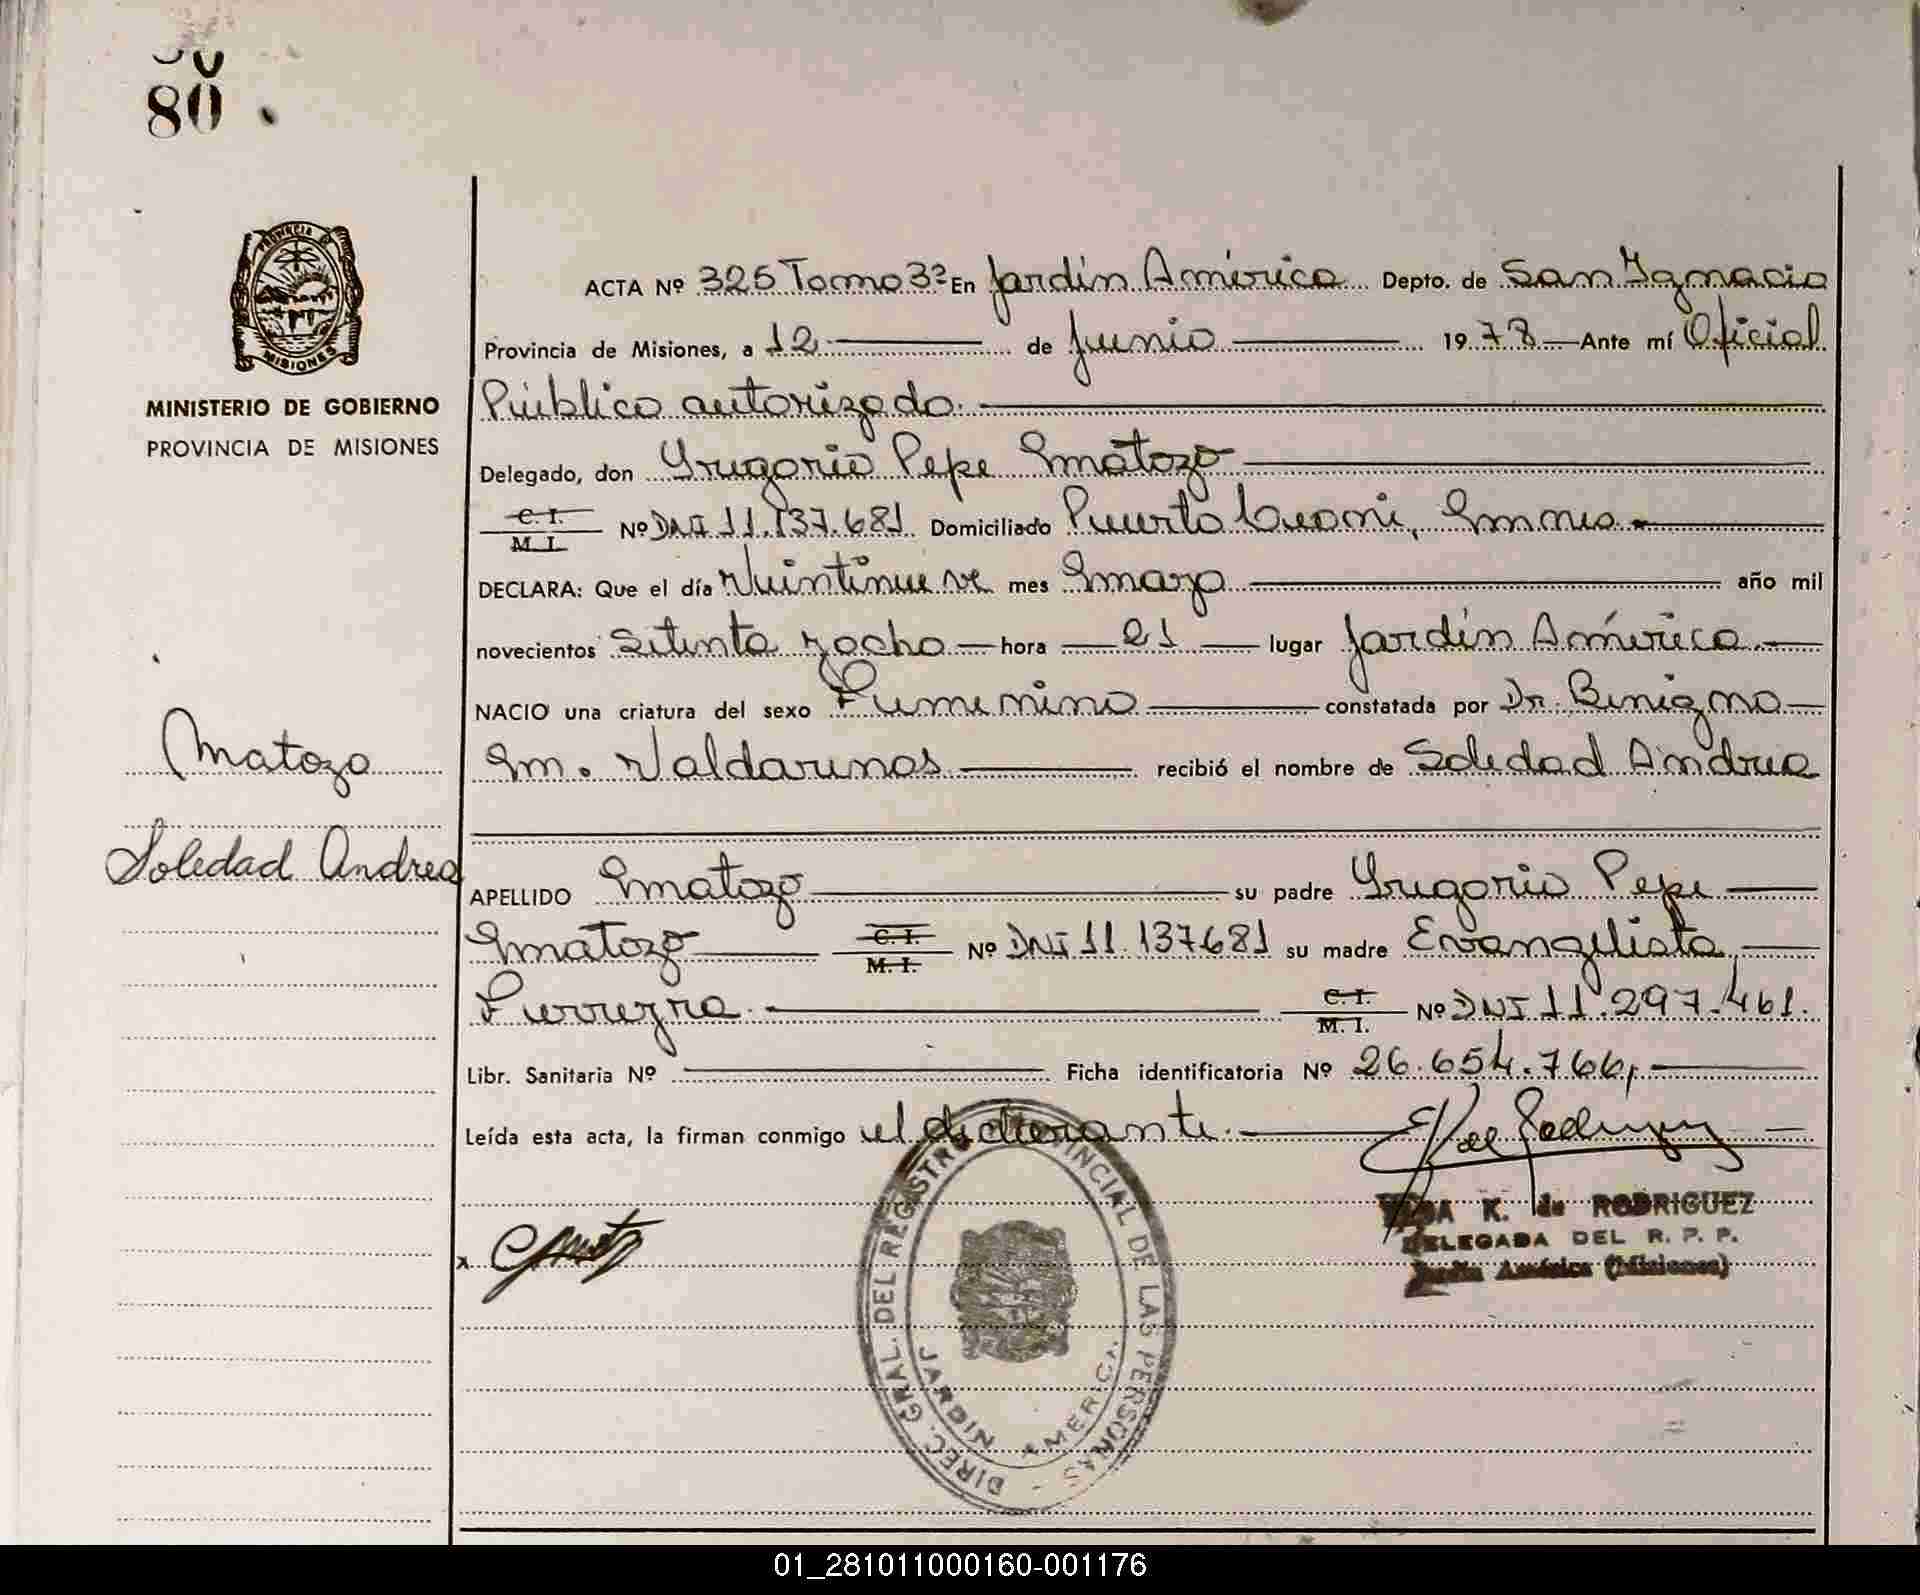 80
PROVINCIA D
MISIONES
MINISTERIO DE GOBIERNO
PROVINCIA DE MISIONES
Matozo
Soledad Andrea
ACTA Nº 325 Tomo 3º En Jardín América Depto. de San Ignacio
Provincia de Misiones, a 12 de Junio 1978 Ante mí Oficial
Público autorizado.
Delegado, don Gregorio Pepe Matozo
C. I. M. I. Nº DNI 11.137.681 Domiciliado Puerto Leoni, Mnes.
DECLARA: Que el día Veintinueve mes Marzo año mil
novecientos Setenta y ocho hora 21 lugar Jardín América
NACIO una criatura del sexo Femenino constatada por Dr. Benigno
M. Valdarenas recibió el nombre de Soledad Andrea
APELLIDO Matozo su padre Gregorio Pepe
Matozo C. I. M. I. Nº DNI 11.137.681 su madre Evangelista
Ferreyra. C. I. M. I. Nº DNI 11.297.461.
Libr. Sanitaria Nº Ficha identificatoria Nº 26.654.766,
Leída esta acta, la firman conmigo el declarante.
K. de RODRIGUEZ
DELEGADA DEL R. P. P.
Jardín América (Misiones)
DIREC. GRAL. DEL REGISTRO PROVINCIAL DE LAS PERSONAS
JARDIN AMERICA
01_281011000160-001176